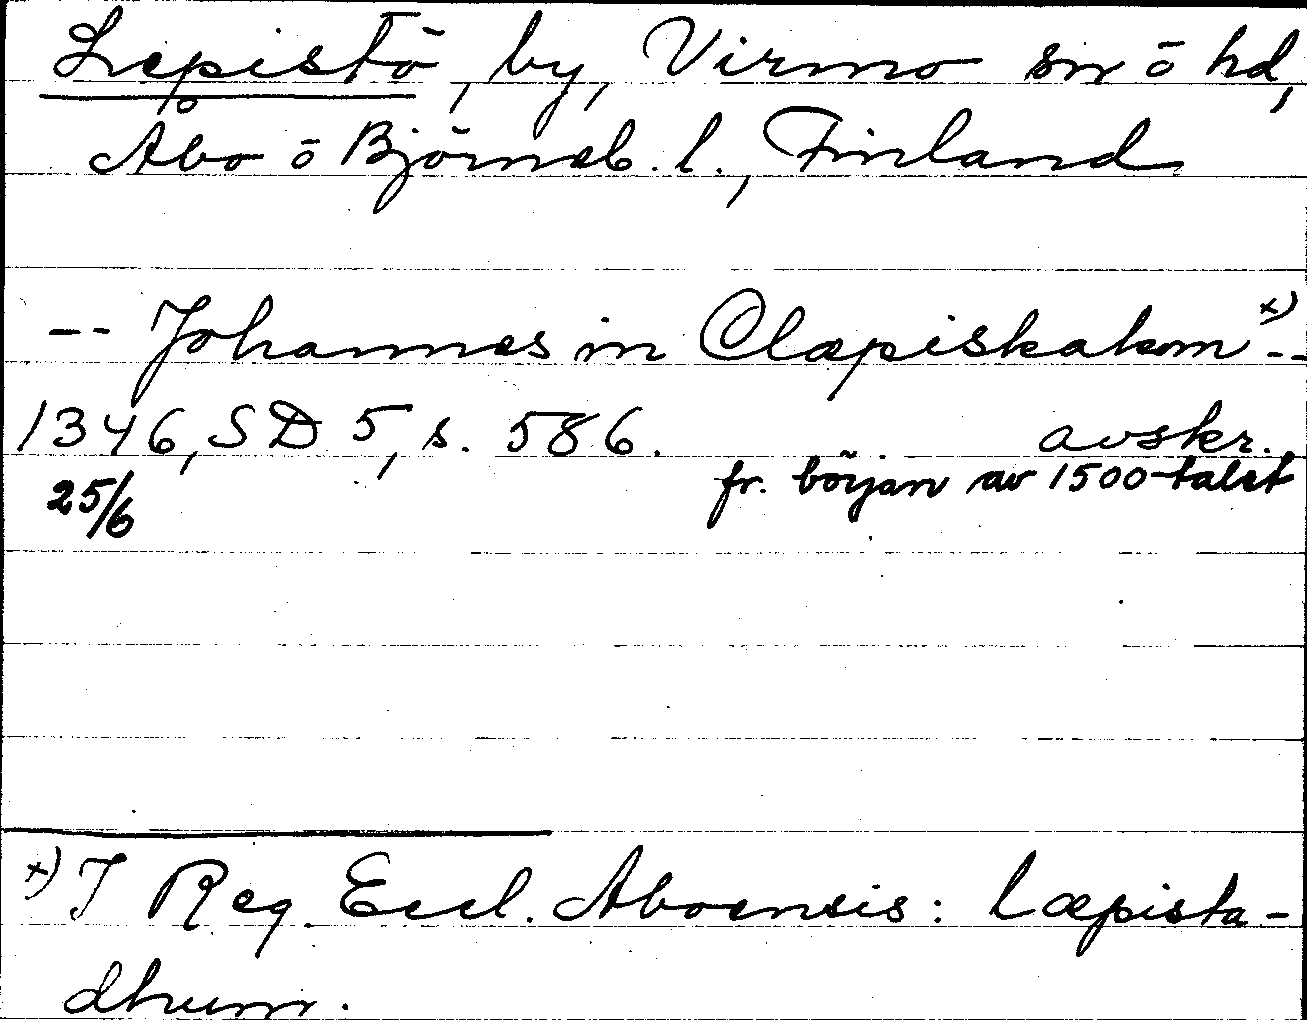 Lepistö, by, Virmo sn ö hd,
Åbo ö Björneb. l., Finland
-- Johannes in Clæpiskakom x) --
1346, SD 5, s. 586. avskr.
25/6 fr. början av 1500-talet
x) I Reg. Eccl. Aboensis: Læpista-
dhum.